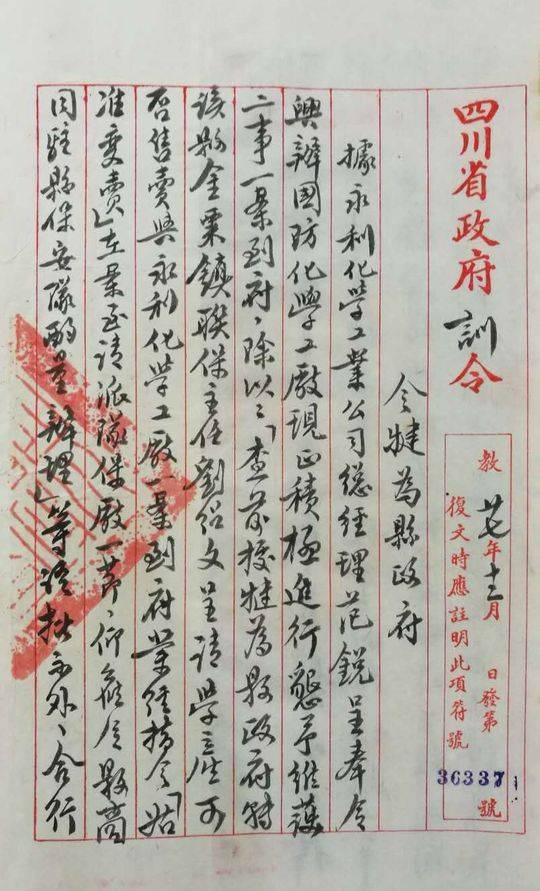 四川省政府訓令
教廿七年十二月 日發第36337號
復文時應註明此項符號
令犍為縣政府
據永利化學工業公司總經理范銳呈奉令
興辦國防化學工廠現正積極進行懇予維護
二事一案到府、除以：「查前據犍為縣政府轉
該縣金粟鎮聯保主任劉紹文呈請學產可
否售賣與永利化學工廠一案到府業經指令「姑
准變賣」在案至請派隊保廠一節、仰候令縣商
同駐縣保安隊酌量辦理」等語批示外、合行